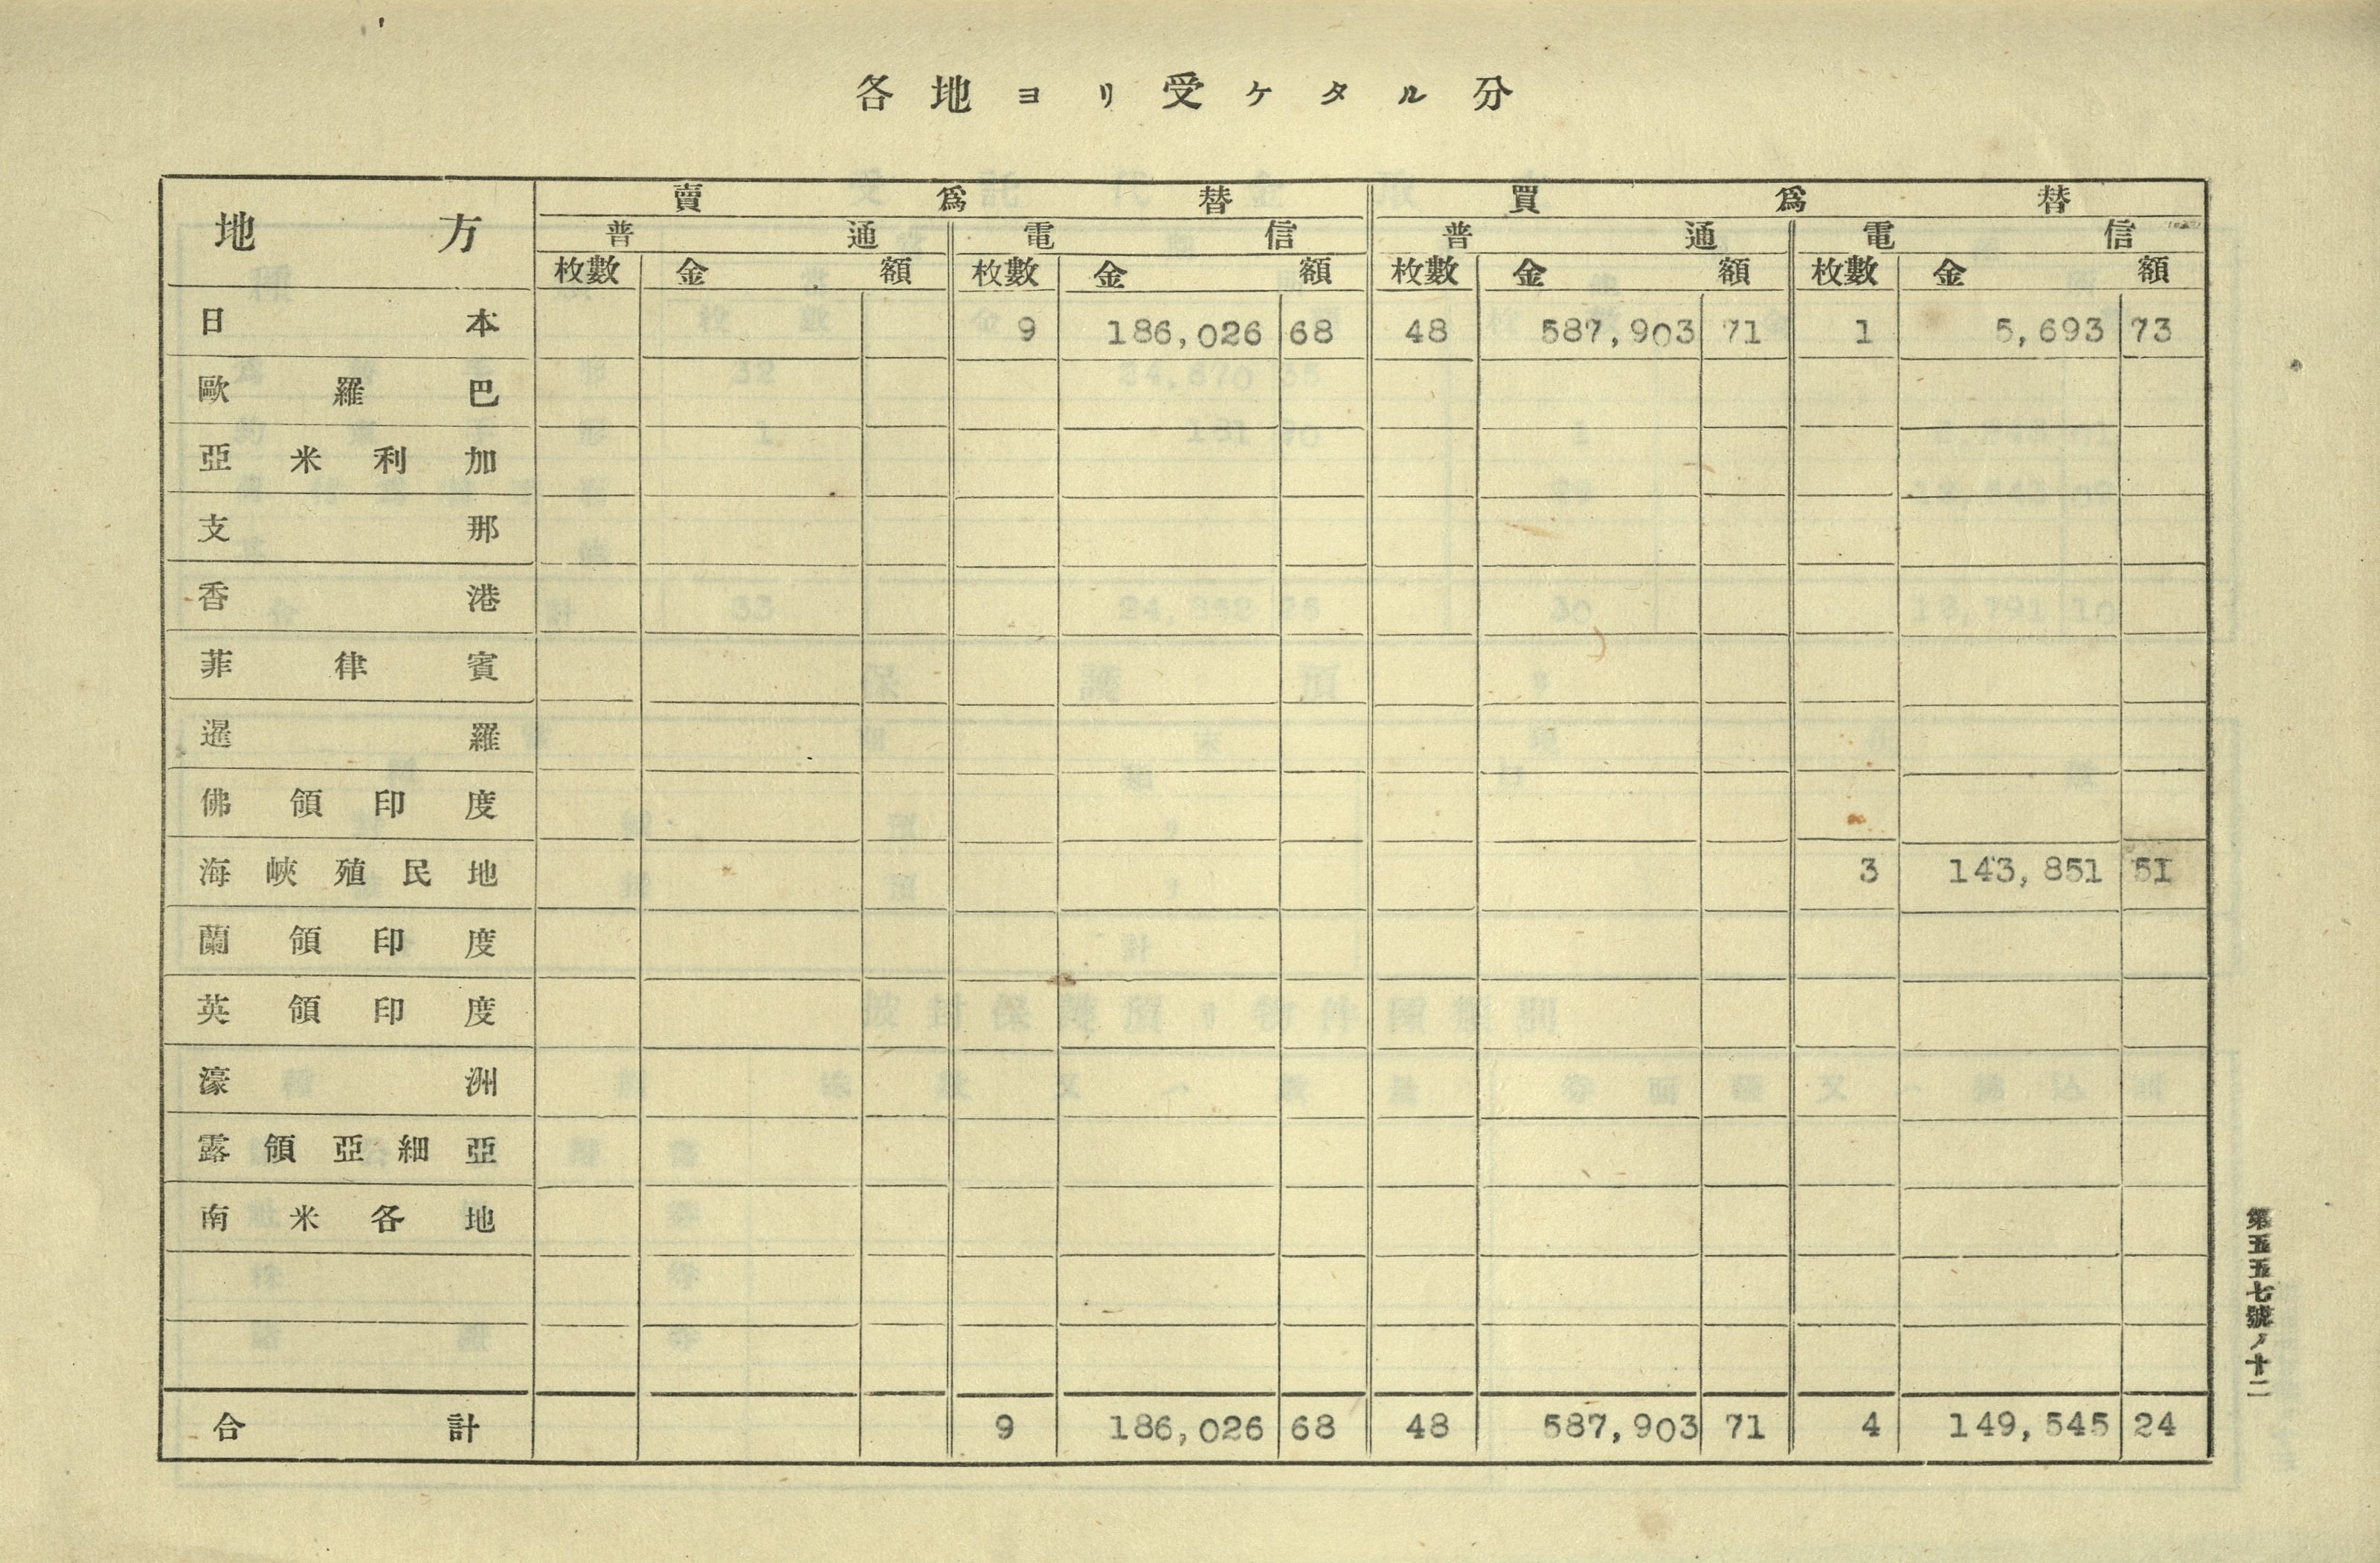 各地ヨリ受ケタル分
地方 賣爲替 買爲替
普通 電信 普通 電信
枚數 金額 枚數 金額 枚數 金額 枚數 金額
日本 9 186,026 68 48 587,903 71 1 5,693 73
歐羅巴
亞米利加
支那
香港
菲律賓
暹羅
佛領印度
海峽殖民地 3 143,851 51
蘭領印度
英領印度
濠洲
露領亞細亞
南米各地
合計 9 186,026 68 48 587,903 71 4 149,545 24
第五五七號ノ十二